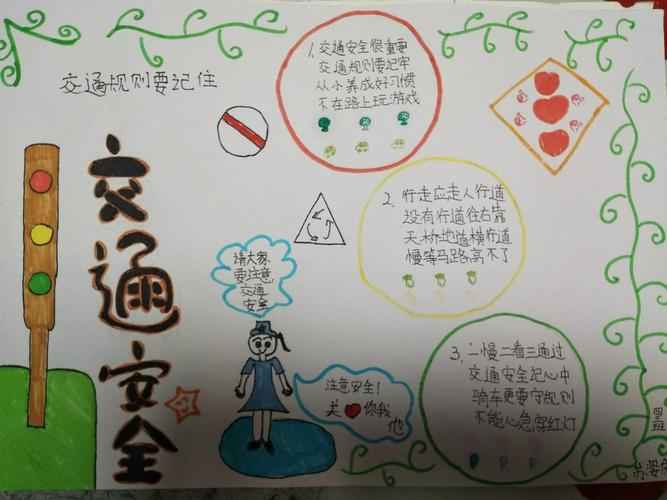 交通规则要记住
交通安全
1. 交通安全很重要
交通规则要记牢
从小养成好习惯
不在路上玩游戏
2. 行走应走人行道
没有行道往右靠
天桥地道横行道
慢等马路高不了
请大家
要注意
交通
安全
3. 一慢二看三通过
交通安全记心中
骑车更要守规则
不能心急穿红灯
注意安全!
关你我
他